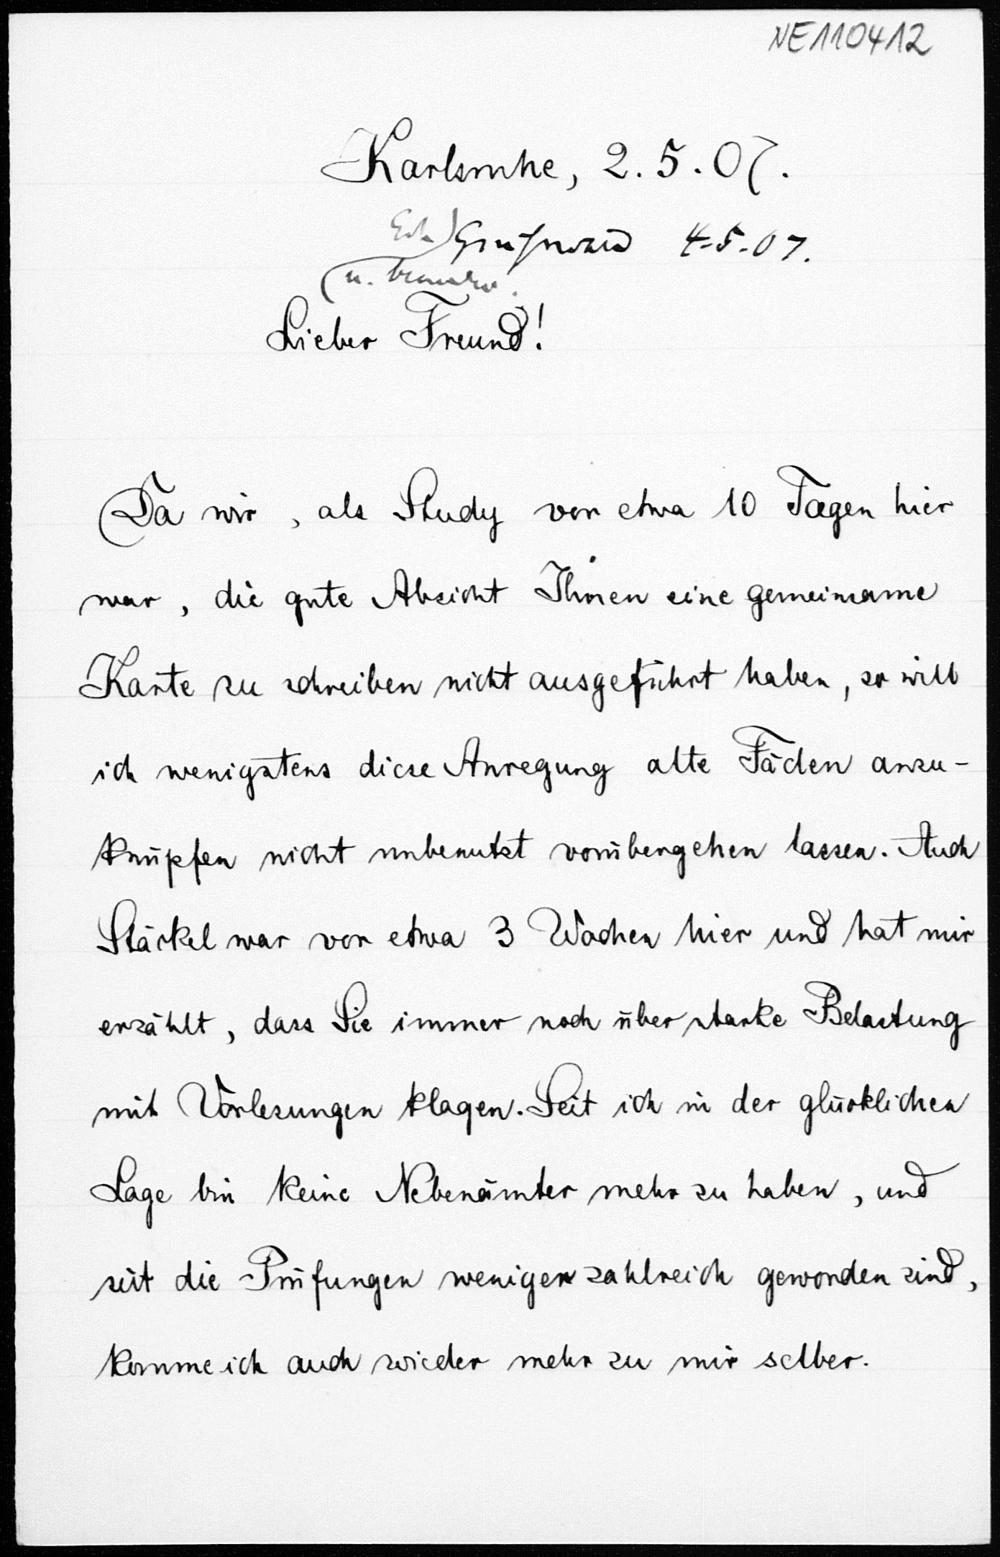 NE110412
Karlsruhe, 2.5.07.
Greifswald 4.5.07.
u.
Lieber Freund!
Da wir, als Study vor etwa 10 Tagen hier
war, die gute Absicht Ihnen eine gemeinsame
Karte zu schreiben nicht ausgeführt haben, so will
ich wenigstens diese Anregung alte Fäden anzu-
knüpfen nicht unbenutzt vorübergehen lassen. Auch
Stäckel war vor etwa 3 Wochen hier und hat mir
erzählt, dass Sie immer noch über starke Belastung
mit Vorlesungen klagen. Seit ich in der glücklichen
Lage bin keine Nebenämter mehr zu haben, und
seit die Prüfungen weniger zahlreich geworden sind,
komme ich auch wieder mehr zu mir selber.